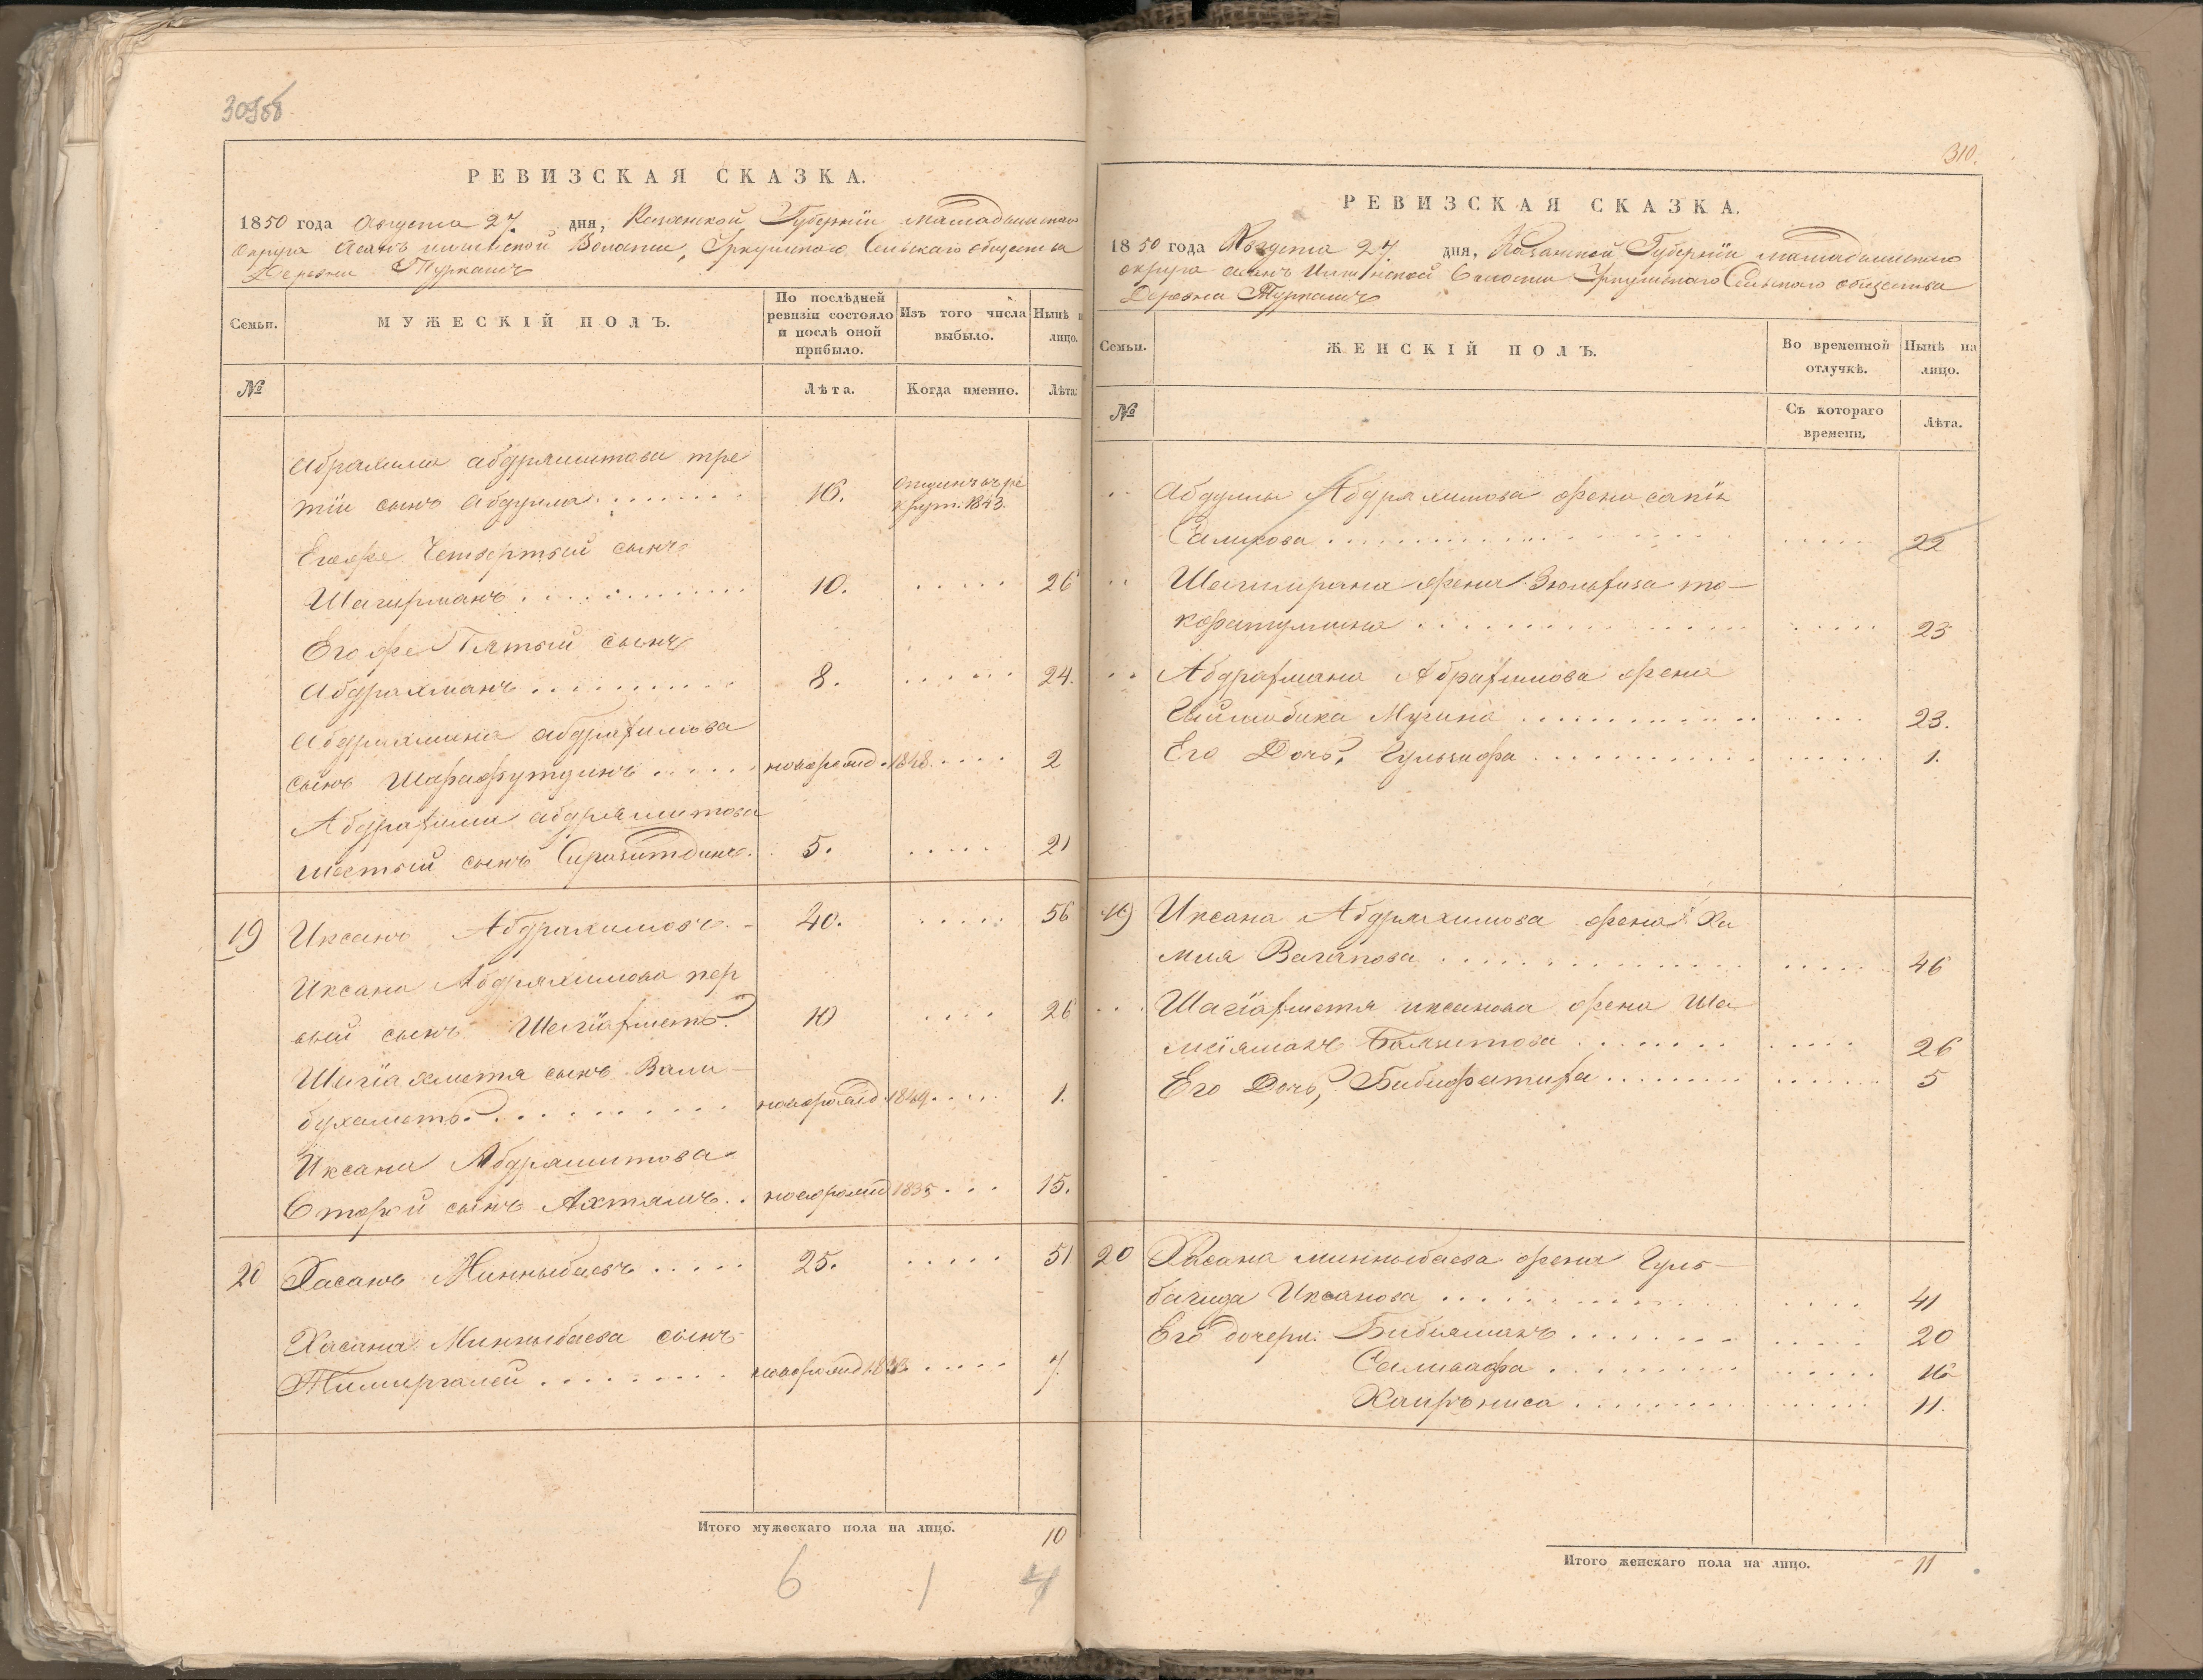 309об
РЕВИЗСКАЯ СКАЗКА.
1850 года Августа 27. дня, Казанской Губернiи мамадышскаго
округа Асанъ илшинской Волости, Уркушскаго Сельскаго общества
Деревни Туркашъ
Семьи.
МУЖЕСКІЙ ПОЛЪ.
По послѣдней
ревизіи состояло
и послѣ оной
прибыло.
Изъ того числа
выбыло.
Нынѣ
лицо.
№
Лѣта.
Когда именно.
Лѣта.
Абдряшитова тре
тiи сынъ Абдулла 16. 1843.
Егоже Четвертый сынъ
Шагирманъ 10. 26
Егоже Пятый сынъ
Абдрахманъ 8. 24.
сынъ Шарафутдинъ новорожд. 1848. 2
Абдряшитова
шестый сынъ Сиразитдинъ. 5. 21
19 Иксанъ Абдрахимовъ. 40. 56
Иксана Абдряхимова пер
вый сынъ Шагiахметъ. 10 26
Шагiахметя сынъ Вали
бухаметъ. новорожд. 1849. 1.
Иксана Абдряшитова
Второй сынъ Ахтямъ. новорожд 1835 15.
20 Хасанъ Минныбаевъ 25. 51
Хасана Минныбаева сынъ
Тимиргалей новорожд 7.
Итого мужескаго пола на лицо. 10
6 1 4
310.
РЕВИЗСКАЯ СКАЗКА.
1850 года Августа 27. дня, Казанской Губернiи мамадышскаго
округа асанъ Илшинской Волости Уркушскаго Сельскаго общества
Деревна Туркашъ
Семьи.
ЖЕНСКІЙ ПОЛЪ.
Во временной
отлучкѣ.
Нынѣ на
лицо.
№
Съ котораго
времени.
Лѣта.
Абдуллы Абдряхимова жена сапiя
Салихова 22
Шагимрана жена Зюльхиза
23
Абдрахмана Абрахимова жена
Мусина 23.
Его Дочь, Гульзифа 1.
19 Иксана Абдряхимова жена Ха
мия Вагапова 46
Шагiахметя иксанова жена Ша
мсiямалъ 26
Его Дочь, Бибифатиха 5
20 Хасана миннибаева жена Гуль
багида Иксанова 41
Его дочери: Бибiямалъ 20
Саливафа 16
Хаирьниса 11.
Итого женскаго пола на лицо. 11